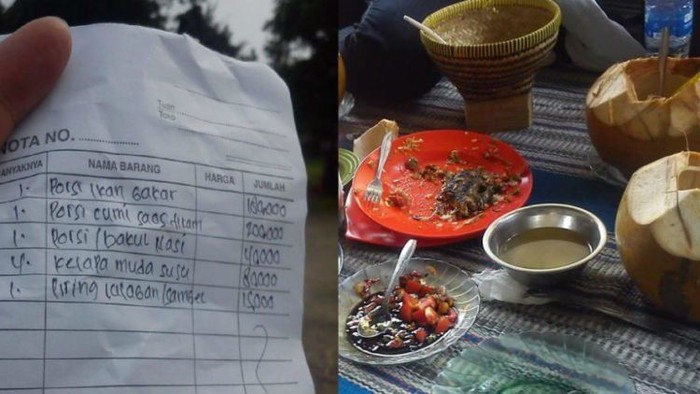 Tuan
Toko
NOTA NO. ............
ANYAKNYA NAMA BARANG HARGA JUMLAH
1. Porsi Ikan Bakar 180.000
1. Porsi cumi saos hitam 200.000
1. Porsi / bakul Nasi 40.000
4. Kelapa muda susu 80.000
1. Piring lalapan/sambel 15.000